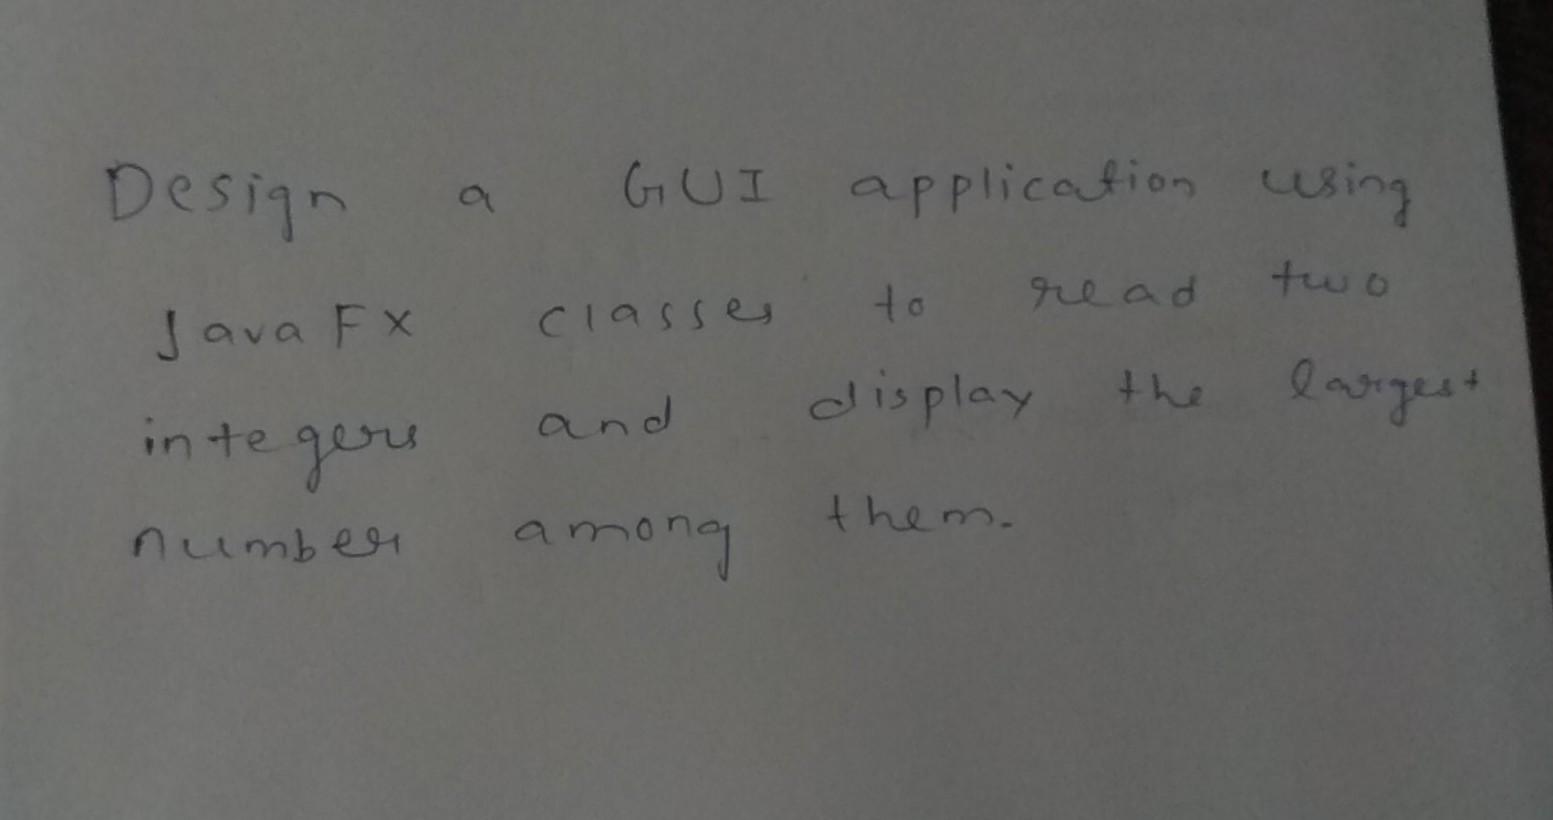 Design a GUI application using
JavaFX classes to read two
integers and display the largest
number among them.